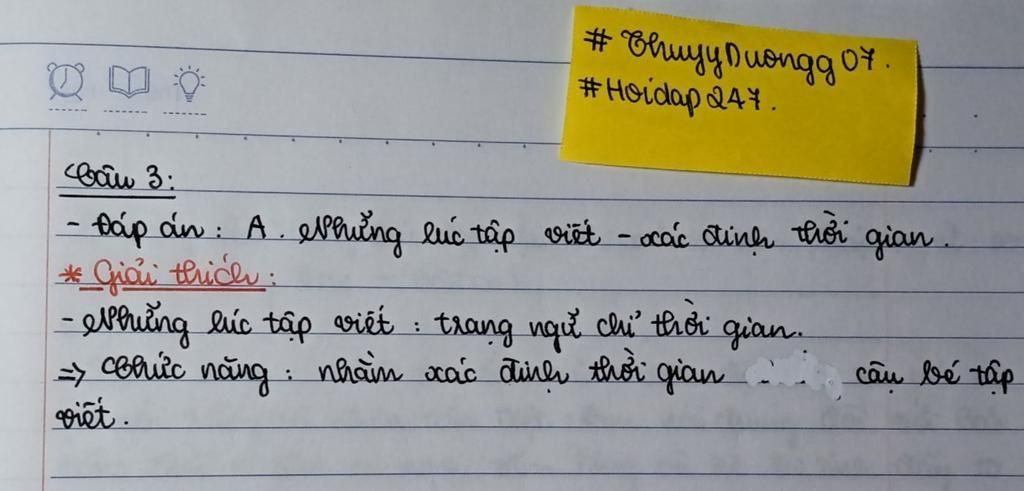 # ThuyyDuongg07.
#Hoidap247.
Câu 3:
- Đáp án : A. Những lúc tập viết - xác định thời gian.
* Giải thích :
- Những lúc tập viết : trạng ngữ chỉ thời gian.
=> Chức năng : nhằm xác định thời gian cậu bé tập
viết.